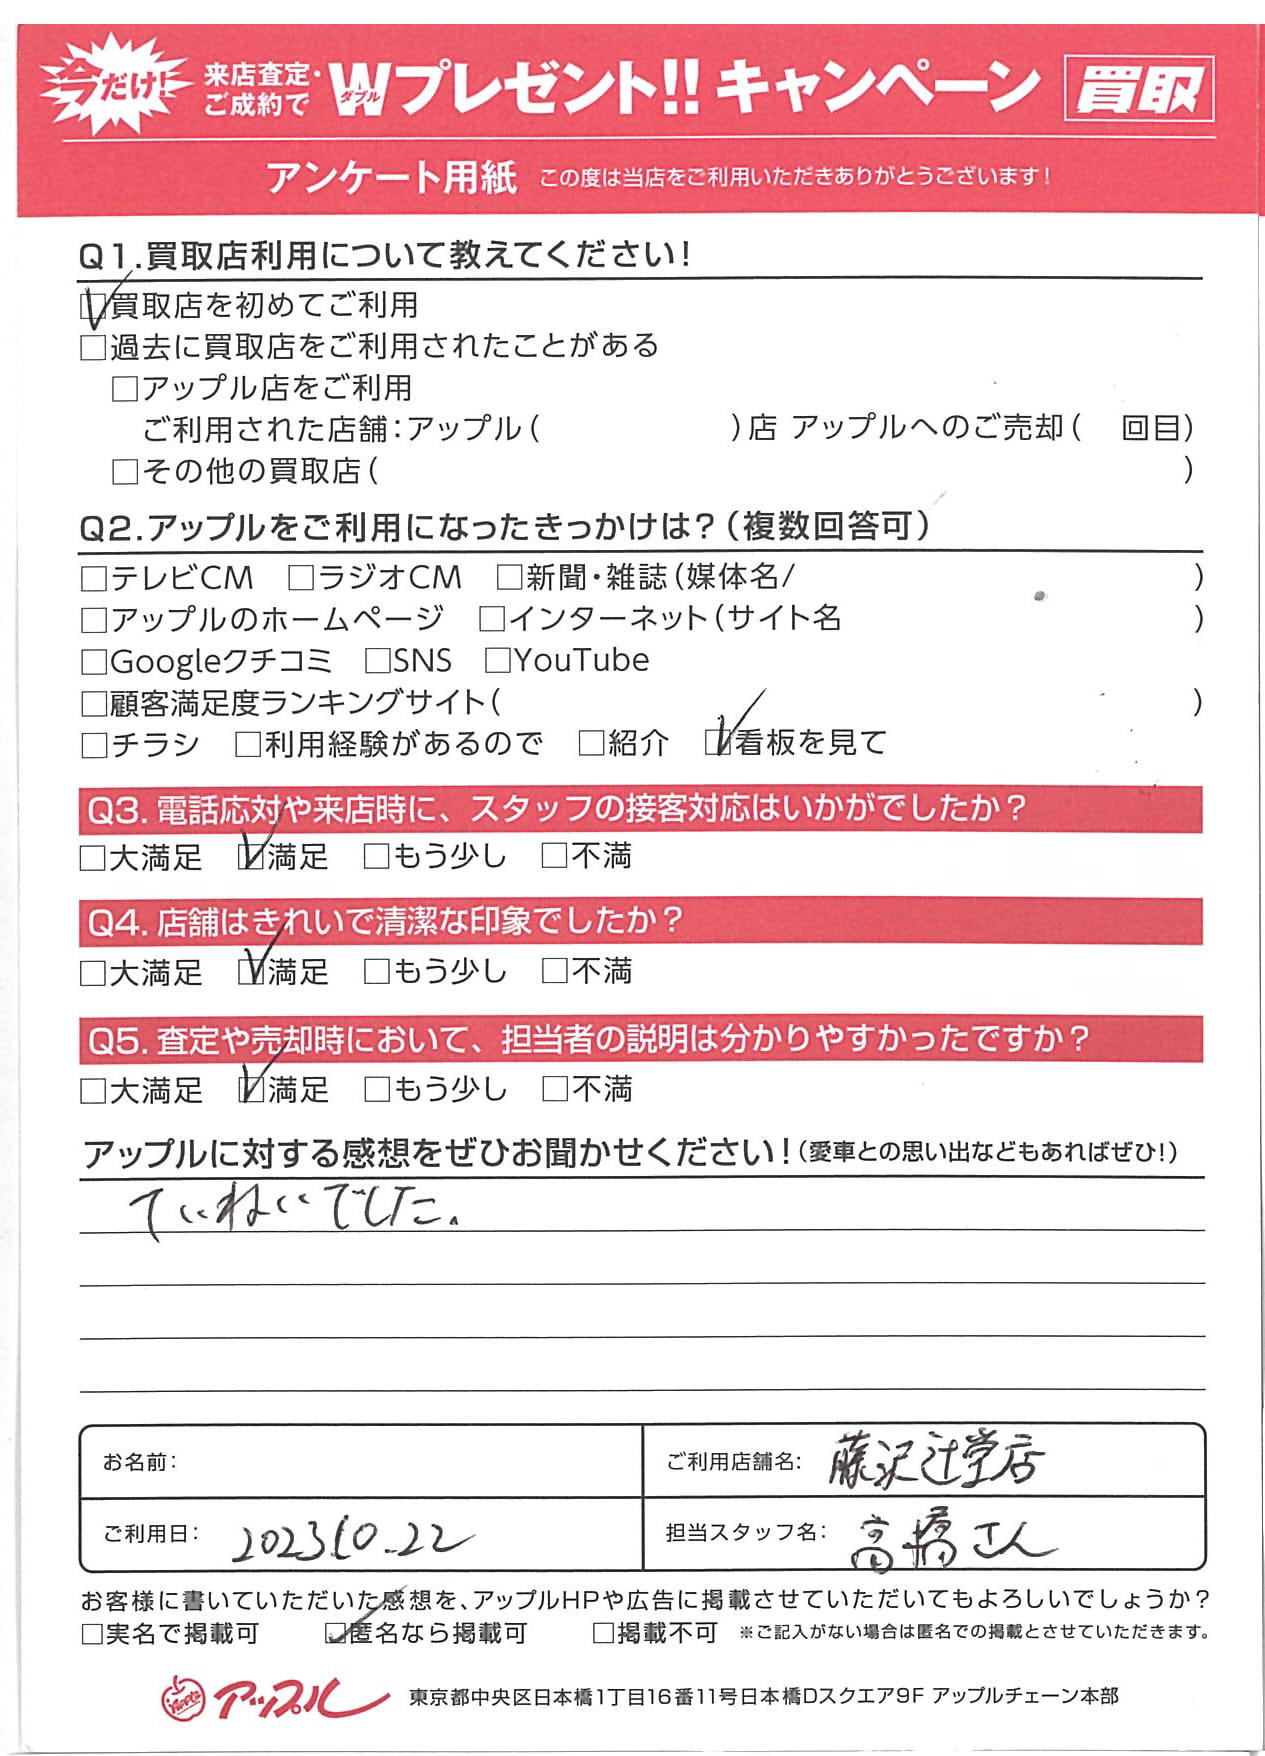 今だけ! 来店査定・ご成約で Wダブルプレゼント!! キャンペーン 買取
アンケート用紙 この度は当店をご利用いただきありがとうございます!
Q1.買取店利用について教えてください!
☑買取店を初めてご利用
□過去に買取店をご利用されたことがある
□アップル店をご利用
ご利用された店舗:アップル( )店 アップルへのご売却( 回目)
□その他の買取店( )
Q2.アップルをご利用になったきっかけは?(複数回答可)
□テレビCM □ラジオCM □新聞・雑誌(媒体名/ )
□アップルのホームページ □インターネット(サイト名 )
□Googleクチコミ □SNS □YouTube
□顧客満足度ランキングサイト( )
□チラシ □利用経験があるので □紹介 ☑看板を見て
Q3.電話応対や来店時に、スタッフの接客対応はいかがでしたか?
□大満足 ☑満足 □もう少し □不満
Q4.店舗はきれいで清潔な印象でしたか?
□大満足 ☑満足 □もう少し □不満
Q5.査定や売却時において、担当者の説明は分かりやすかったですか?
□大満足 ☑満足 □もう少し □不満
アップルに対する感想をぜひお聞かせください!(愛車との思い出などもあればぜひ!)
ていねいでした。
お名前: ご利用店舗名: 藤沢辻堂店
ご利用日: 2023.10.22 担当スタッフ名: 高橋さん
お客様に書いていただいた感想を、アップルHPや広告に掲載させていただいてもよろしいでしょうか?
□実名で掲載可 ☑匿名なら掲載可 □掲載不可 ※ご記入がない場合は匿名での掲載とさせていただきます。
Apple アップル 東京都中央区日本橋1丁目16番11号日本橋Dスクエア9F アップルチェーン本部